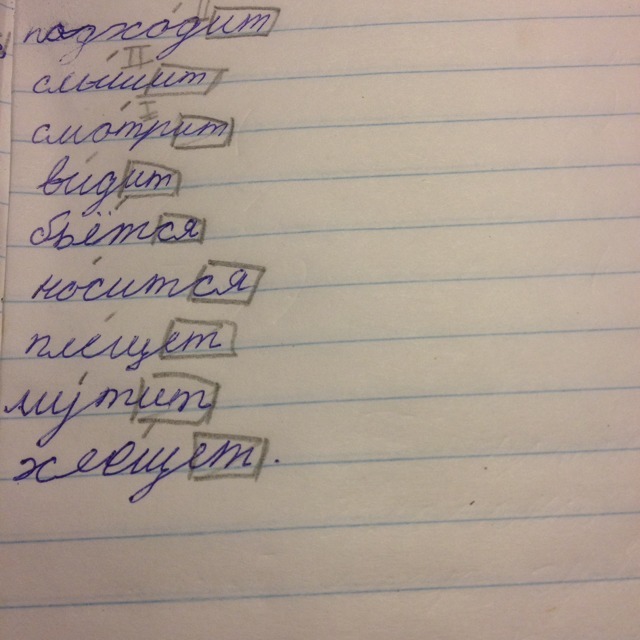 подходит
II
слышит
I
смотрит
видит
бьётся
носится
плещет
мутит
хлещет.